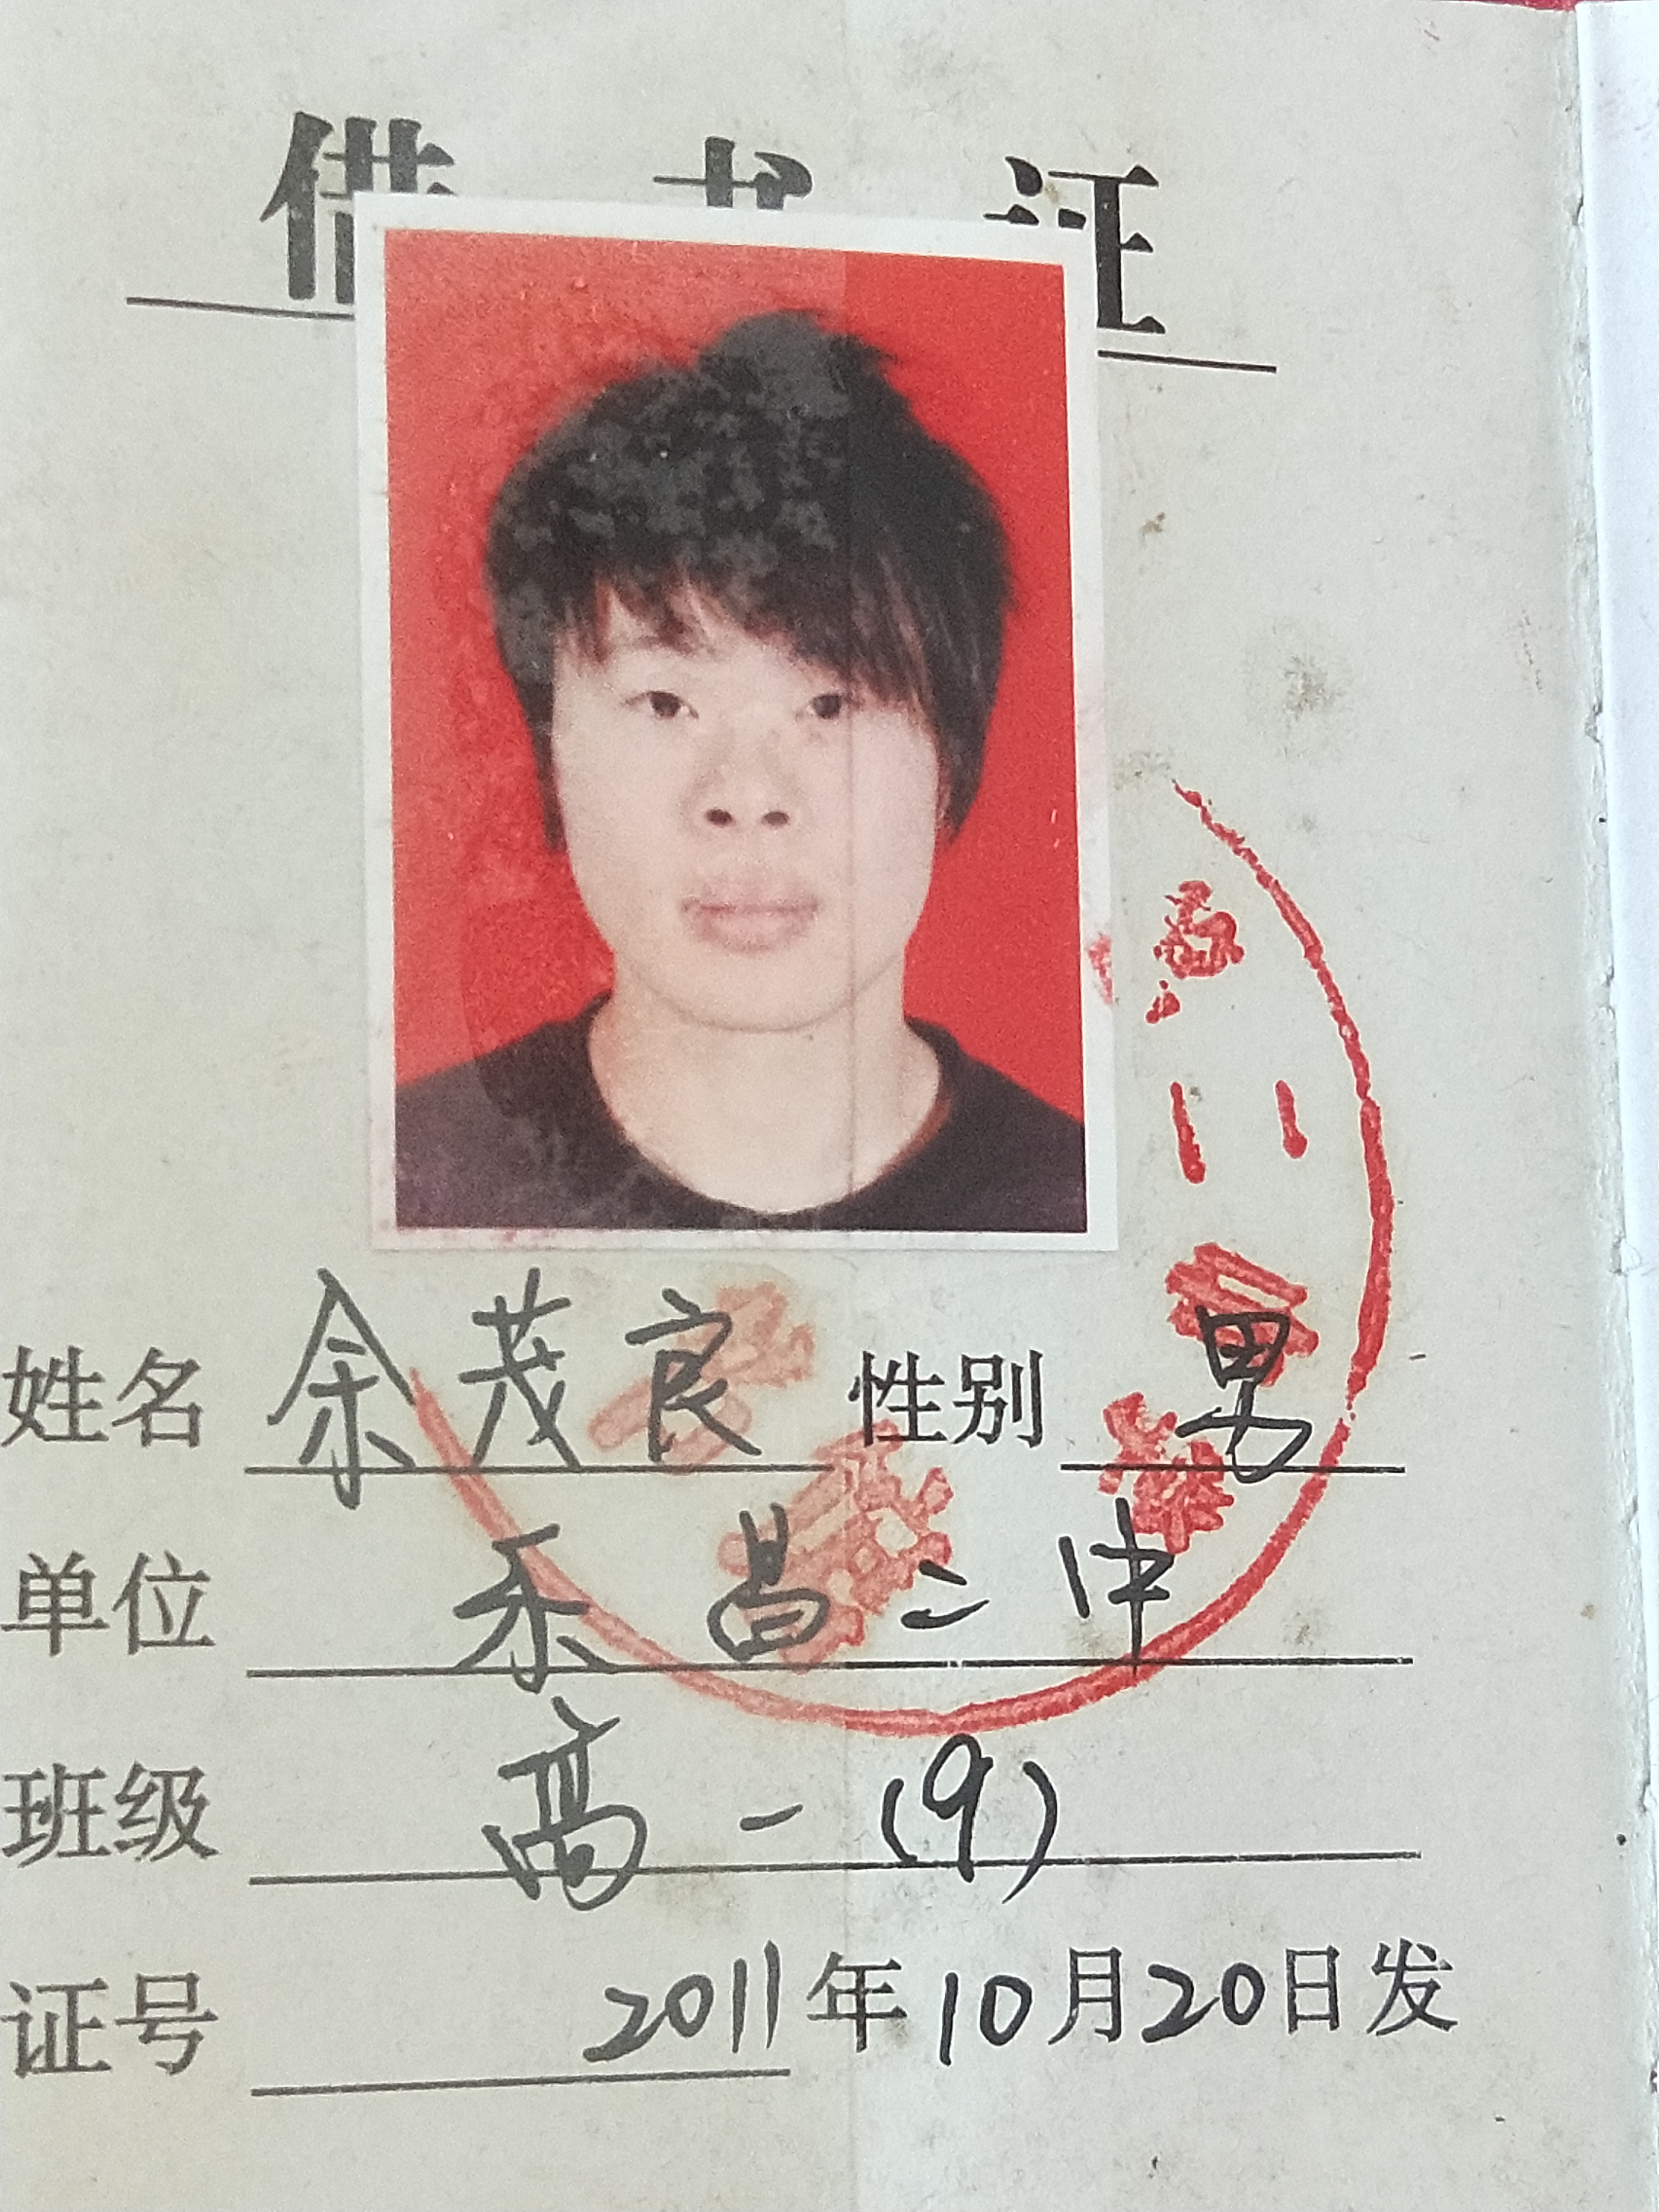 借书证
姓名 余茂良 性别 男
单位 禾昌二中
班级 高一(9)
证号 2011年10月20日发